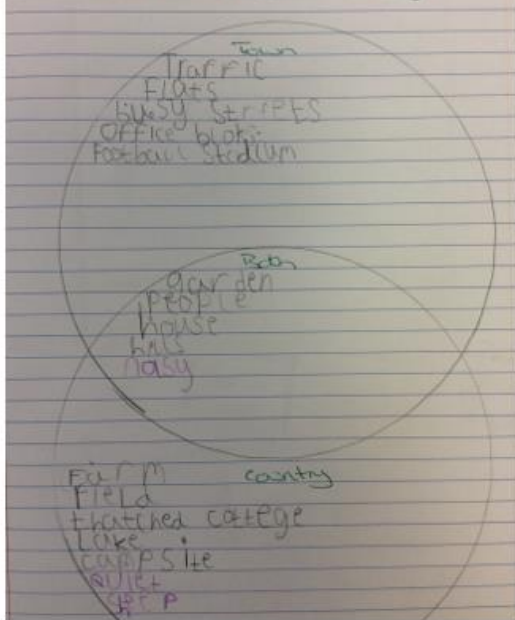 Town
Traffic
Flats
busy streets
Office
Football Stadium
Both
garden
people
house
nosy
Country
Farm
Field
thatched cottege
Lake
campsite
quiet